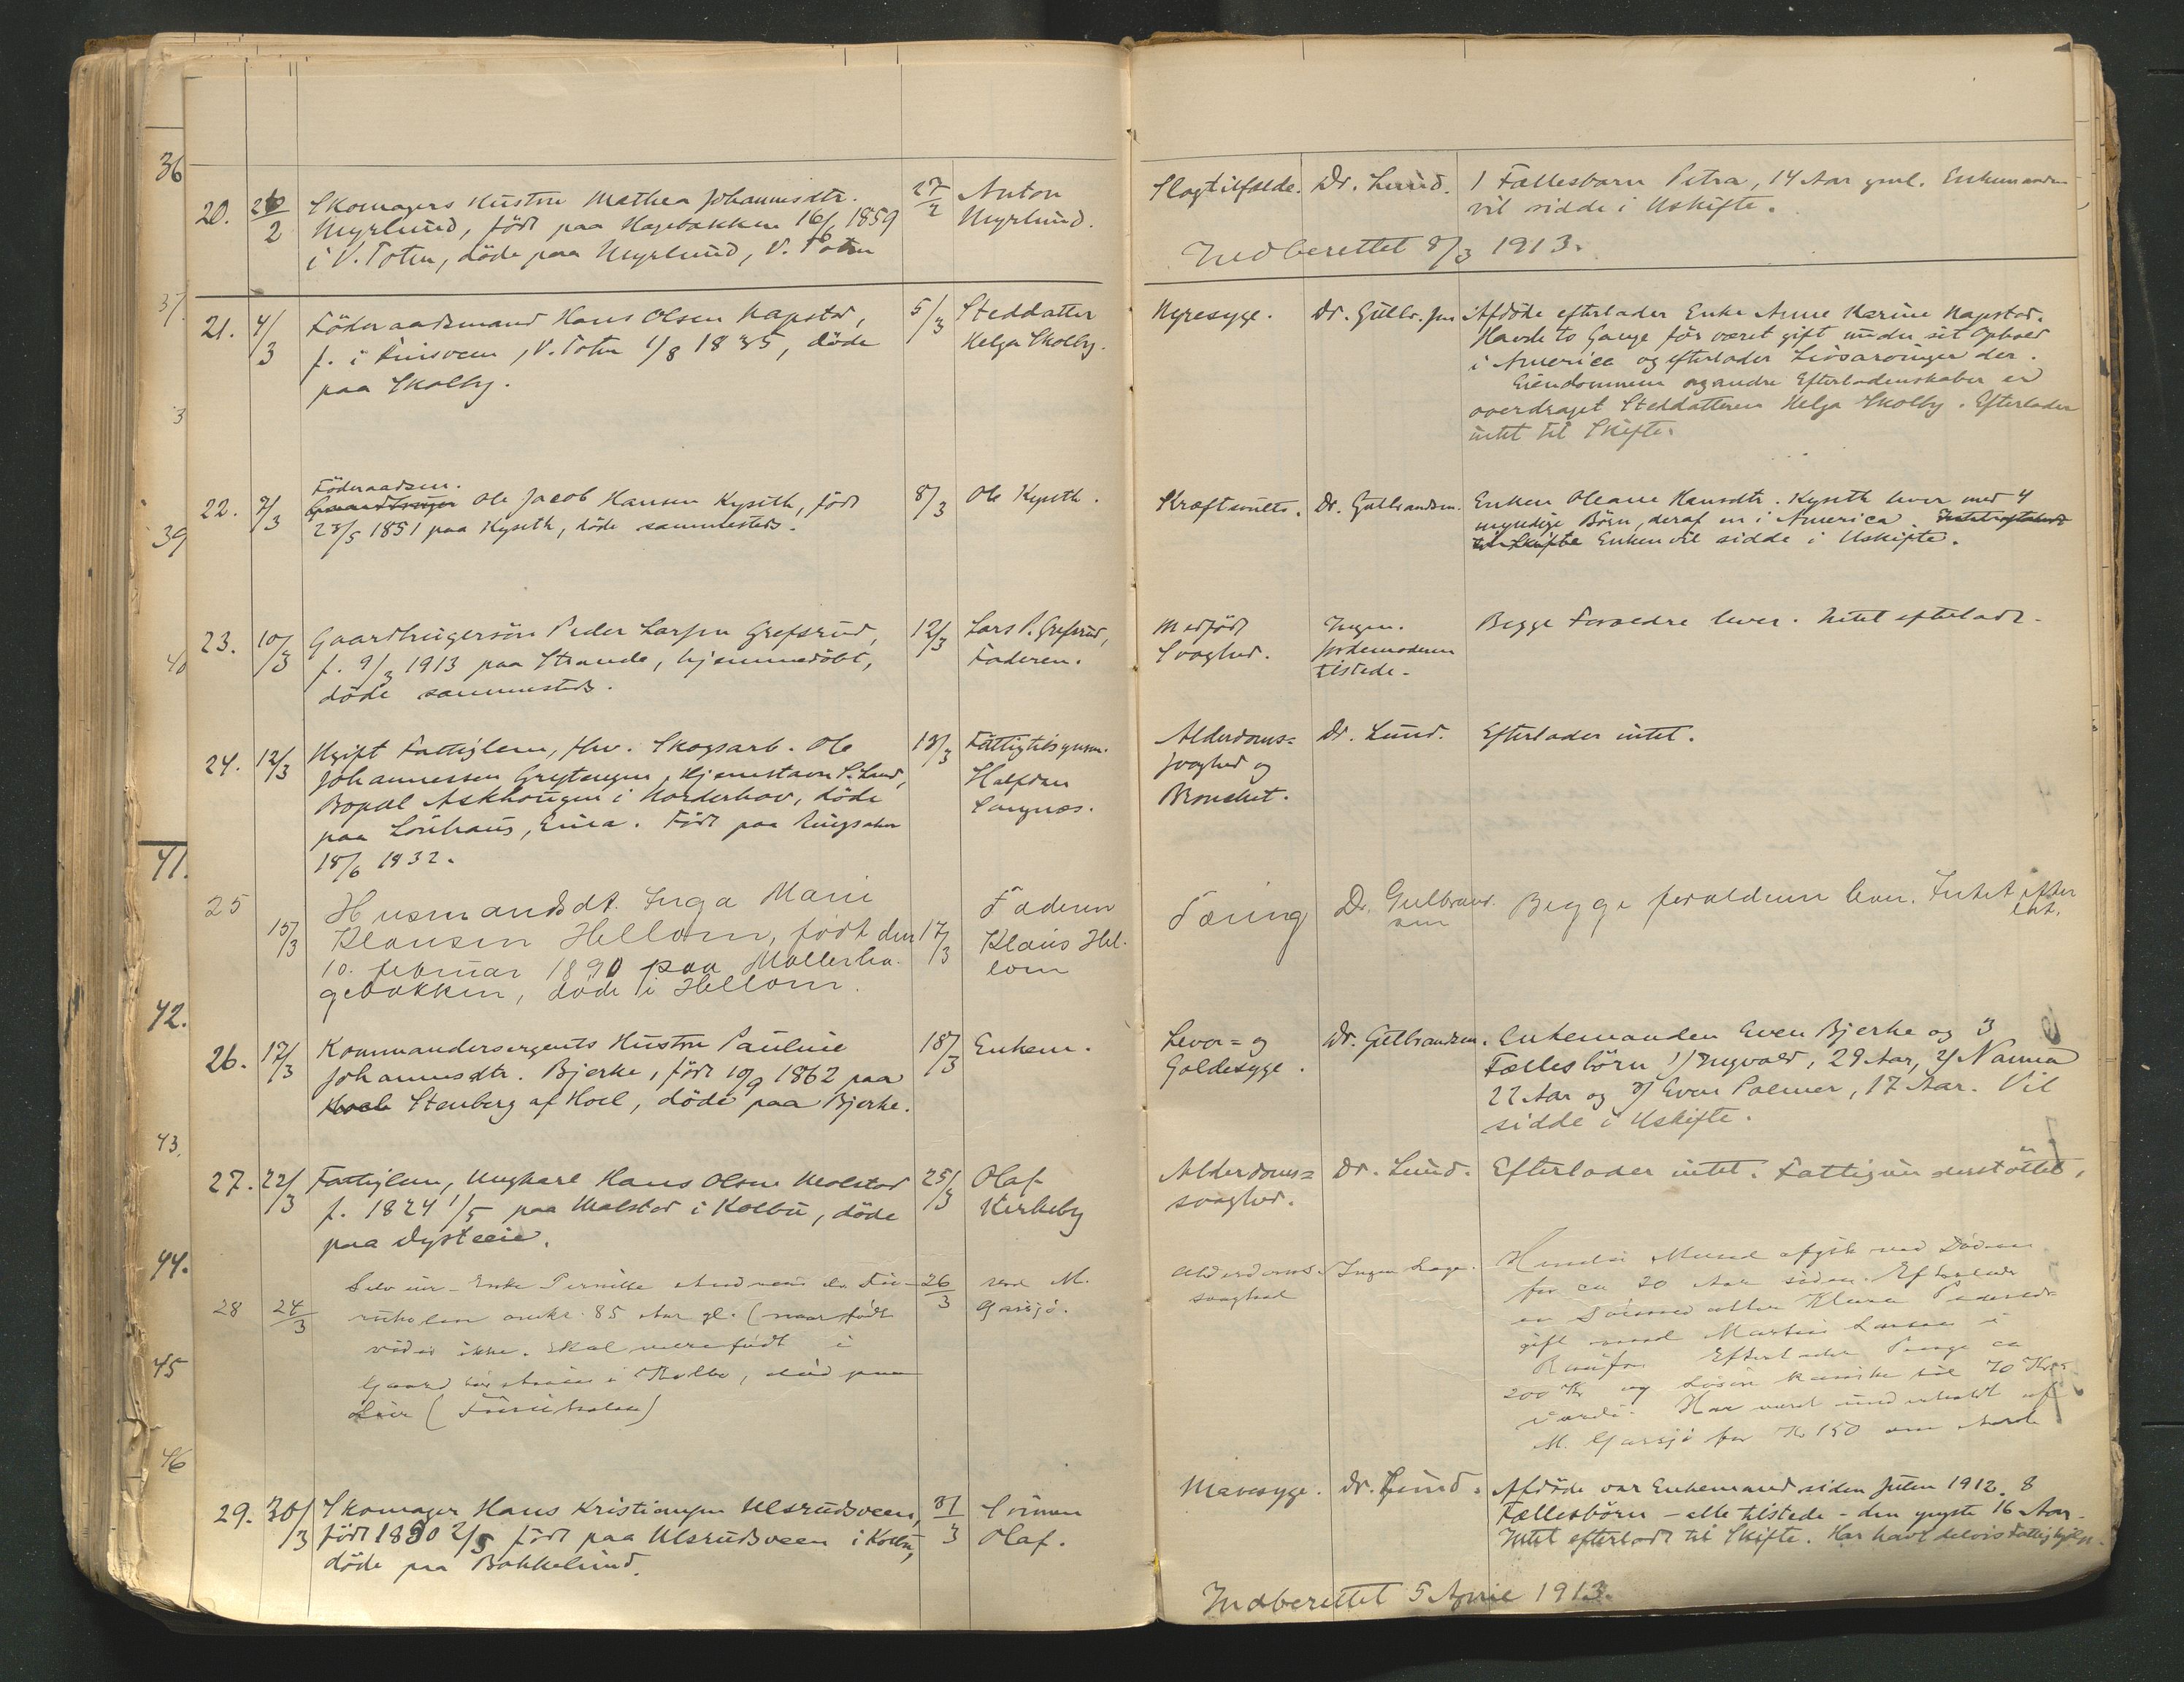 36
37.
3
39
40
41.
42.
43.
44.
45
46
20. 26/2 Skomagers Hustru Mathea Johannesdtr. 27/2 Anton
Myrlund, født paa Hagebakken 16/6 1859 Myrlund.
i V. Toten, døde paa Myrlund, V. Toten
Slagtilfælde. Dr. Lund. 1 Fællesbarn Petra, 14 Aar gml. Enkemanden
vil sidde i Uskifte.
Indberettet 8/3 1913.
21. 4/3 Föderaadsmand Hans Olsen Kapstad, 5/3 Steddatter
f. i , V. Toten 1/8 1835, döde Helga Skolby.
paa Skolby.
Nyresyge. Dr. Gulbr.sen Afdöde efterlader Enke Anne Karine Kapstad.
Havde to Gange för været gift under sit Ophold
i America og efterlader Livsarvinger der.
Eiendommen og andre Efterladenskaber er
overdraget Steddatteren Helga Skolby. Efterlader
intet til Skifte.
22. 7/3 Föderaadsm.
Gaardbruger Ole Jacob Hansen Kyseth, född 8/3 Ole Kyseth.
23/5 1851 paa Kyseth, döde sammesteds.
Kræftsvulst. Dr. Gulbrandsen. Enken Oleane Hansdtr. Kyseth lever med 4
myndige Börn, deraf en i America. Intet efterladt
til Skifte Enken vil sidde i Uskifte.
23. 10/3 Gaardbrugersön Peder Larsen Grefsrud, 12/3 Lars P. Grefsrud,
f. 9/3 1913 paa Strande, hjemmedöbt, Faderen.
döde sammesteds.
Medfödt Ingen. Begge Forældre lever. Intet efterladt.
Svaghed. Jordemoderen
tilstede.
24. 12/3 Ugift Fattiglem, fhv. Skogsarb. Ole 18/3 Fattigtilsynsm.
Johannessen Grytengen, Hjemstavn S. Land, Halfdan
Bopæl Askhougen i Norderhov, döde Sangnæs.
paa Lönhaug, Eina. Född paa Ringsaker
18/6 1832.
Alderdoms= Dr. Lund. Efterlader intet.
svaghed og
Bronchit.
25 15/3 Husmandsdt. Inga Marie Faderen
Klausen Hellom, født den 17/3 Klaus Hel-
10. februar 1890 paa Møllerha- lom
gebakken, døde i Hellom.
Tæring Dr. Gulbrand- Begge forældrene lever. Intet efter
sen lat.
26. 17/3 Kommandersergents Hustru Pauline 18/3 Enkem.
Johannesdtr. Bjerke, född 10/9 1862 paa
Hoel Stenberg af Hoel, döde paa Bjerke.
Lever= og Dr. Gulbrandsen. Enkemanden Even Bjerke og 3
Galdesyge. Fællesbörn 1/ Ingvald, 29 Aar, 2/ Nanna
22 Aar og 3/ Even Palmer, 17 Aar. Vil
sidde i Uskifte.
27. 22/3 Fattiglem, Ungkarl Hans Olsen Molstad 25/3 Olaf
f. 1824 1/5 paa Molstad i Kolbu, döde Kirkeby
paa Dysteeie.
Alderdoms= Dr. Lund. Efterlader intet. Fattigunderstöttet.
svaghed.
28 24/3 Enke Pernille 26/3 M.
85 Aar gl. (naar födt Garsjö.
vides ikke. Skal være födt i
Gaard i Kolbu, död paa
Alderdoms- Ingen Læge. Hendes Mand afgik ved Döden
svaghed for ca 20 Aar siden. Efterlader
en datter Klara
gift med Martin Larsen i
Raufos Efterlader Penge ca
200 Kr og Lösöre kanske til 70 Kr
værdi. Har været underholdt af
M. Garsjö for Kr 150 om Aaret
29. 30/3 Skomager Hans Kristiansen Ulsrudsveen, 31/3 Sönnen
född 1850 2/5 född paa Ulsrudsveen i Kolbu, Olaf.
döde paa Bakkelund.
Mavesyge. Dr. Lund. Afdöde var Enkemand siden Julen 1912. 8
Fællesbörn - alle tilstede - den yngste 16 Aar.
Intet efterladt til Skifte. Har havt delvis Fattighjælp.
Indberettet 5 April 1913.